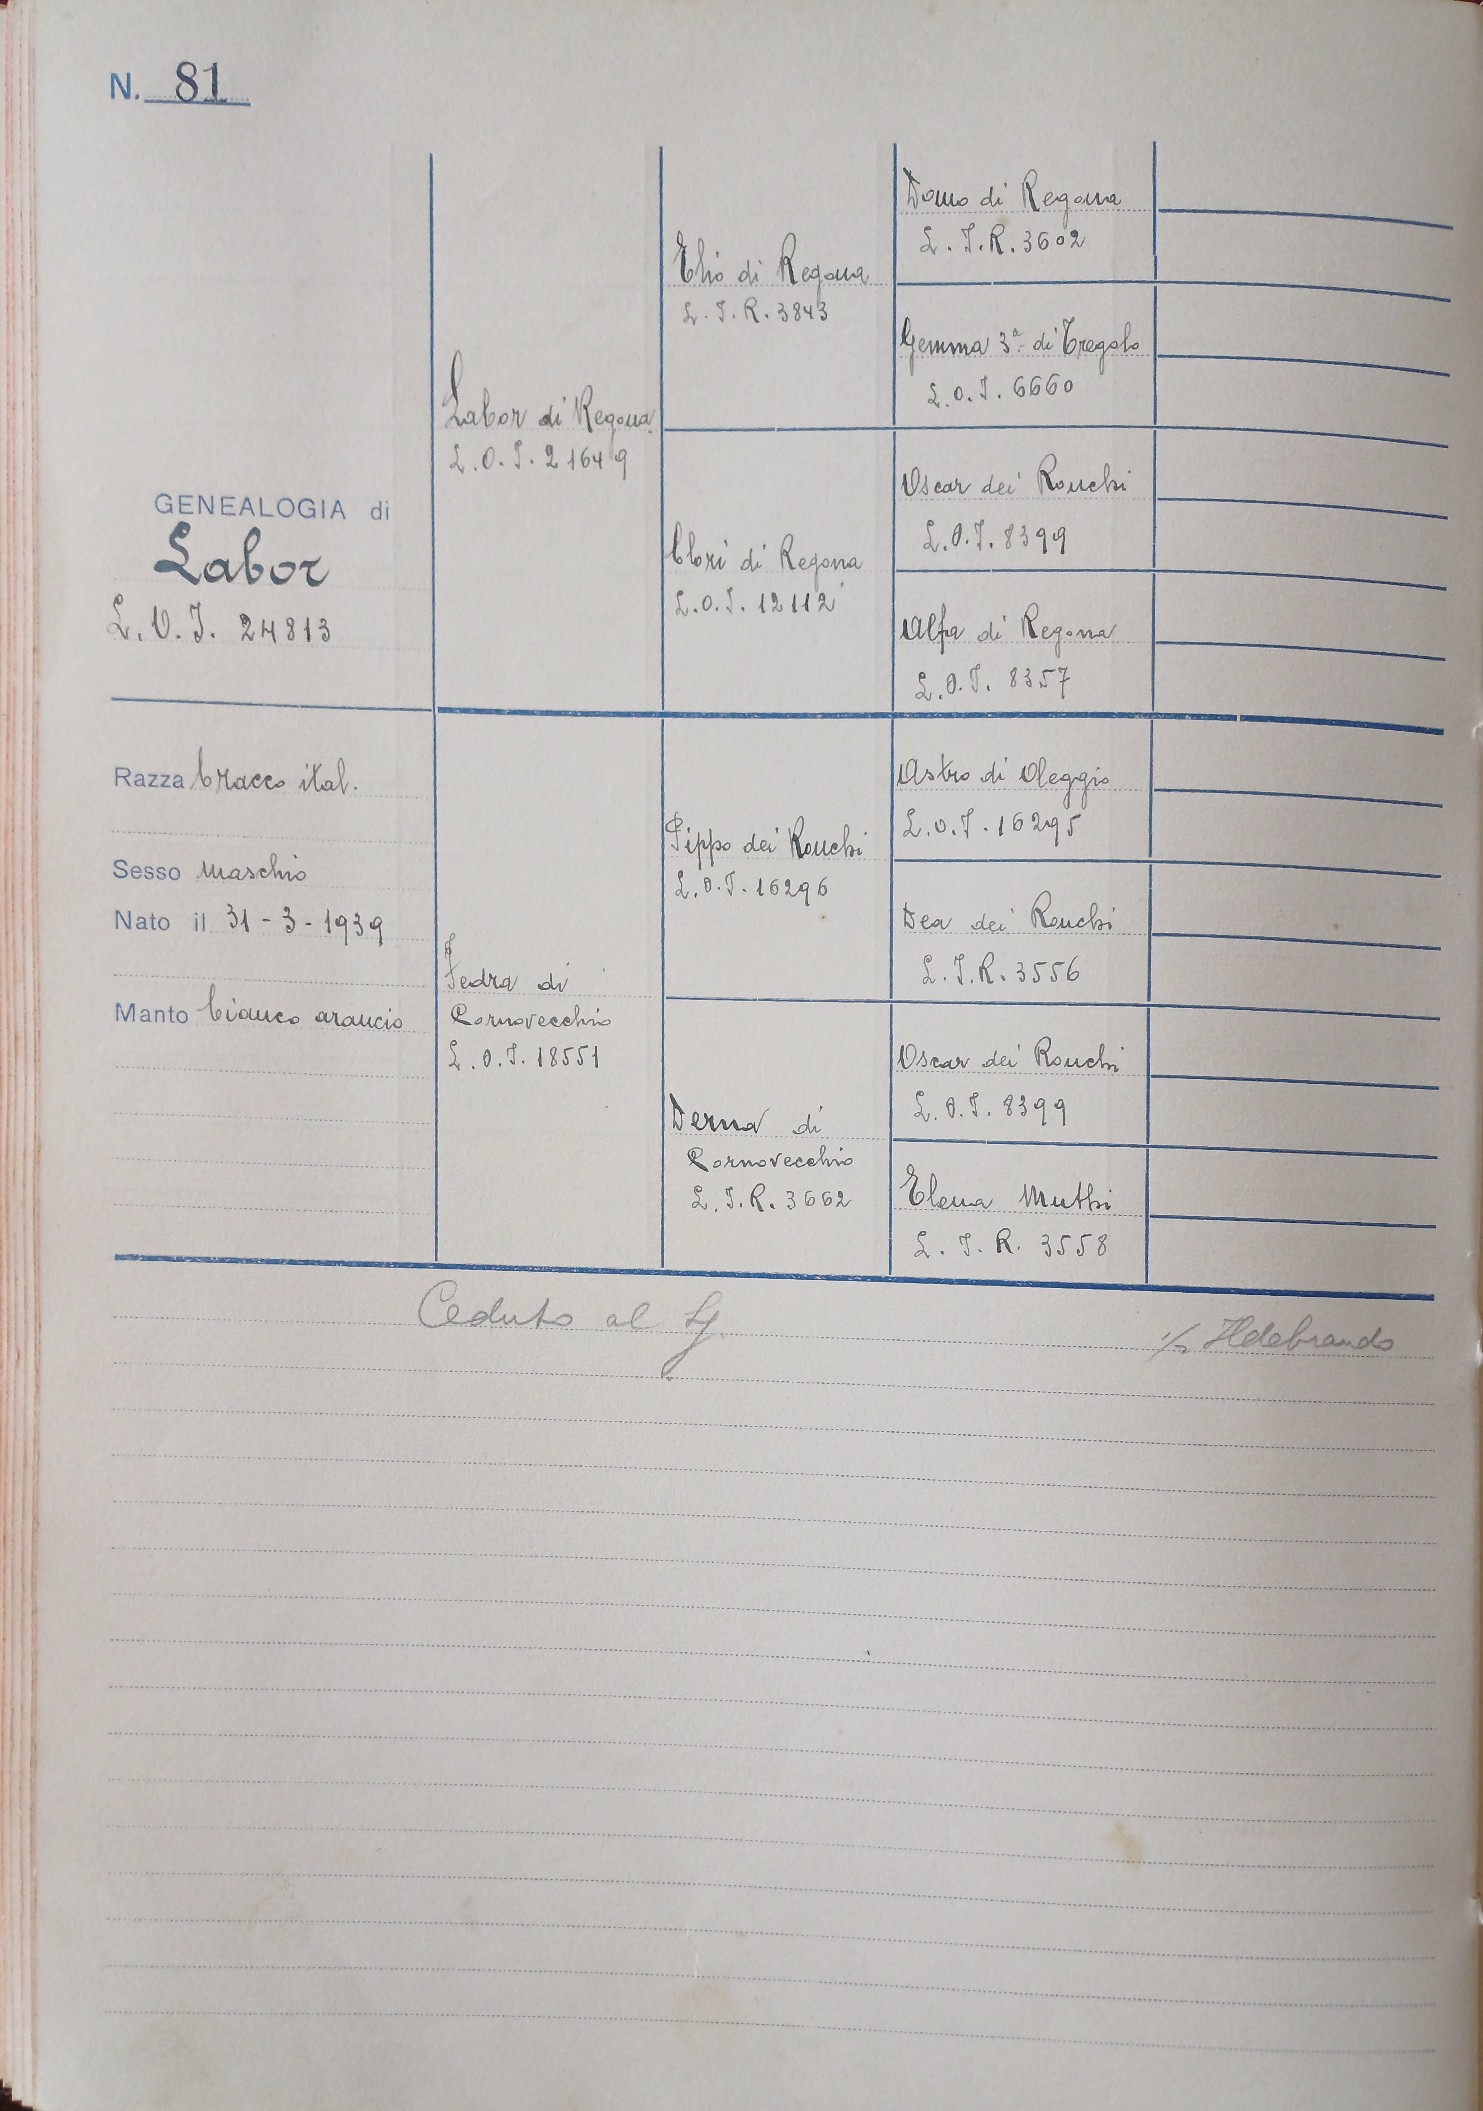 N. 81
GENEALOGIA di
Labor
L.O.I. 24813
Razza bracco ital.
Sesso maschio
Nato il 31-3-1939
Manto bianco arancio
Labor di Regona
L.O.I. 21649
Fedra di
Cornovecchio
L.O.I. 18551
Elio di Regona
L.I.R. 3843
Clori di Regona
L.O.I. 12112
Pippo dei Ronchi
L.O.I. 16296
Derna di
Cornovecchio
L.I.R. 3662
Domo di Regona
L.I.R. 3602
Gemma 3ª di Tregolo
L.O.I. 6660
Oscar dei Ronchi
L.O.I. 8399
Alfa di Regona
L.O.I. 8357
Astro di Oleggio
L.O.I. 16295
Dea dei Ronchi
L.I.R. 3556
Oscar dei Ronchi
L.O.I. 8399
Elena Muthi
L.I.R. 3558
Ceduto al Sg.
Ildebrando